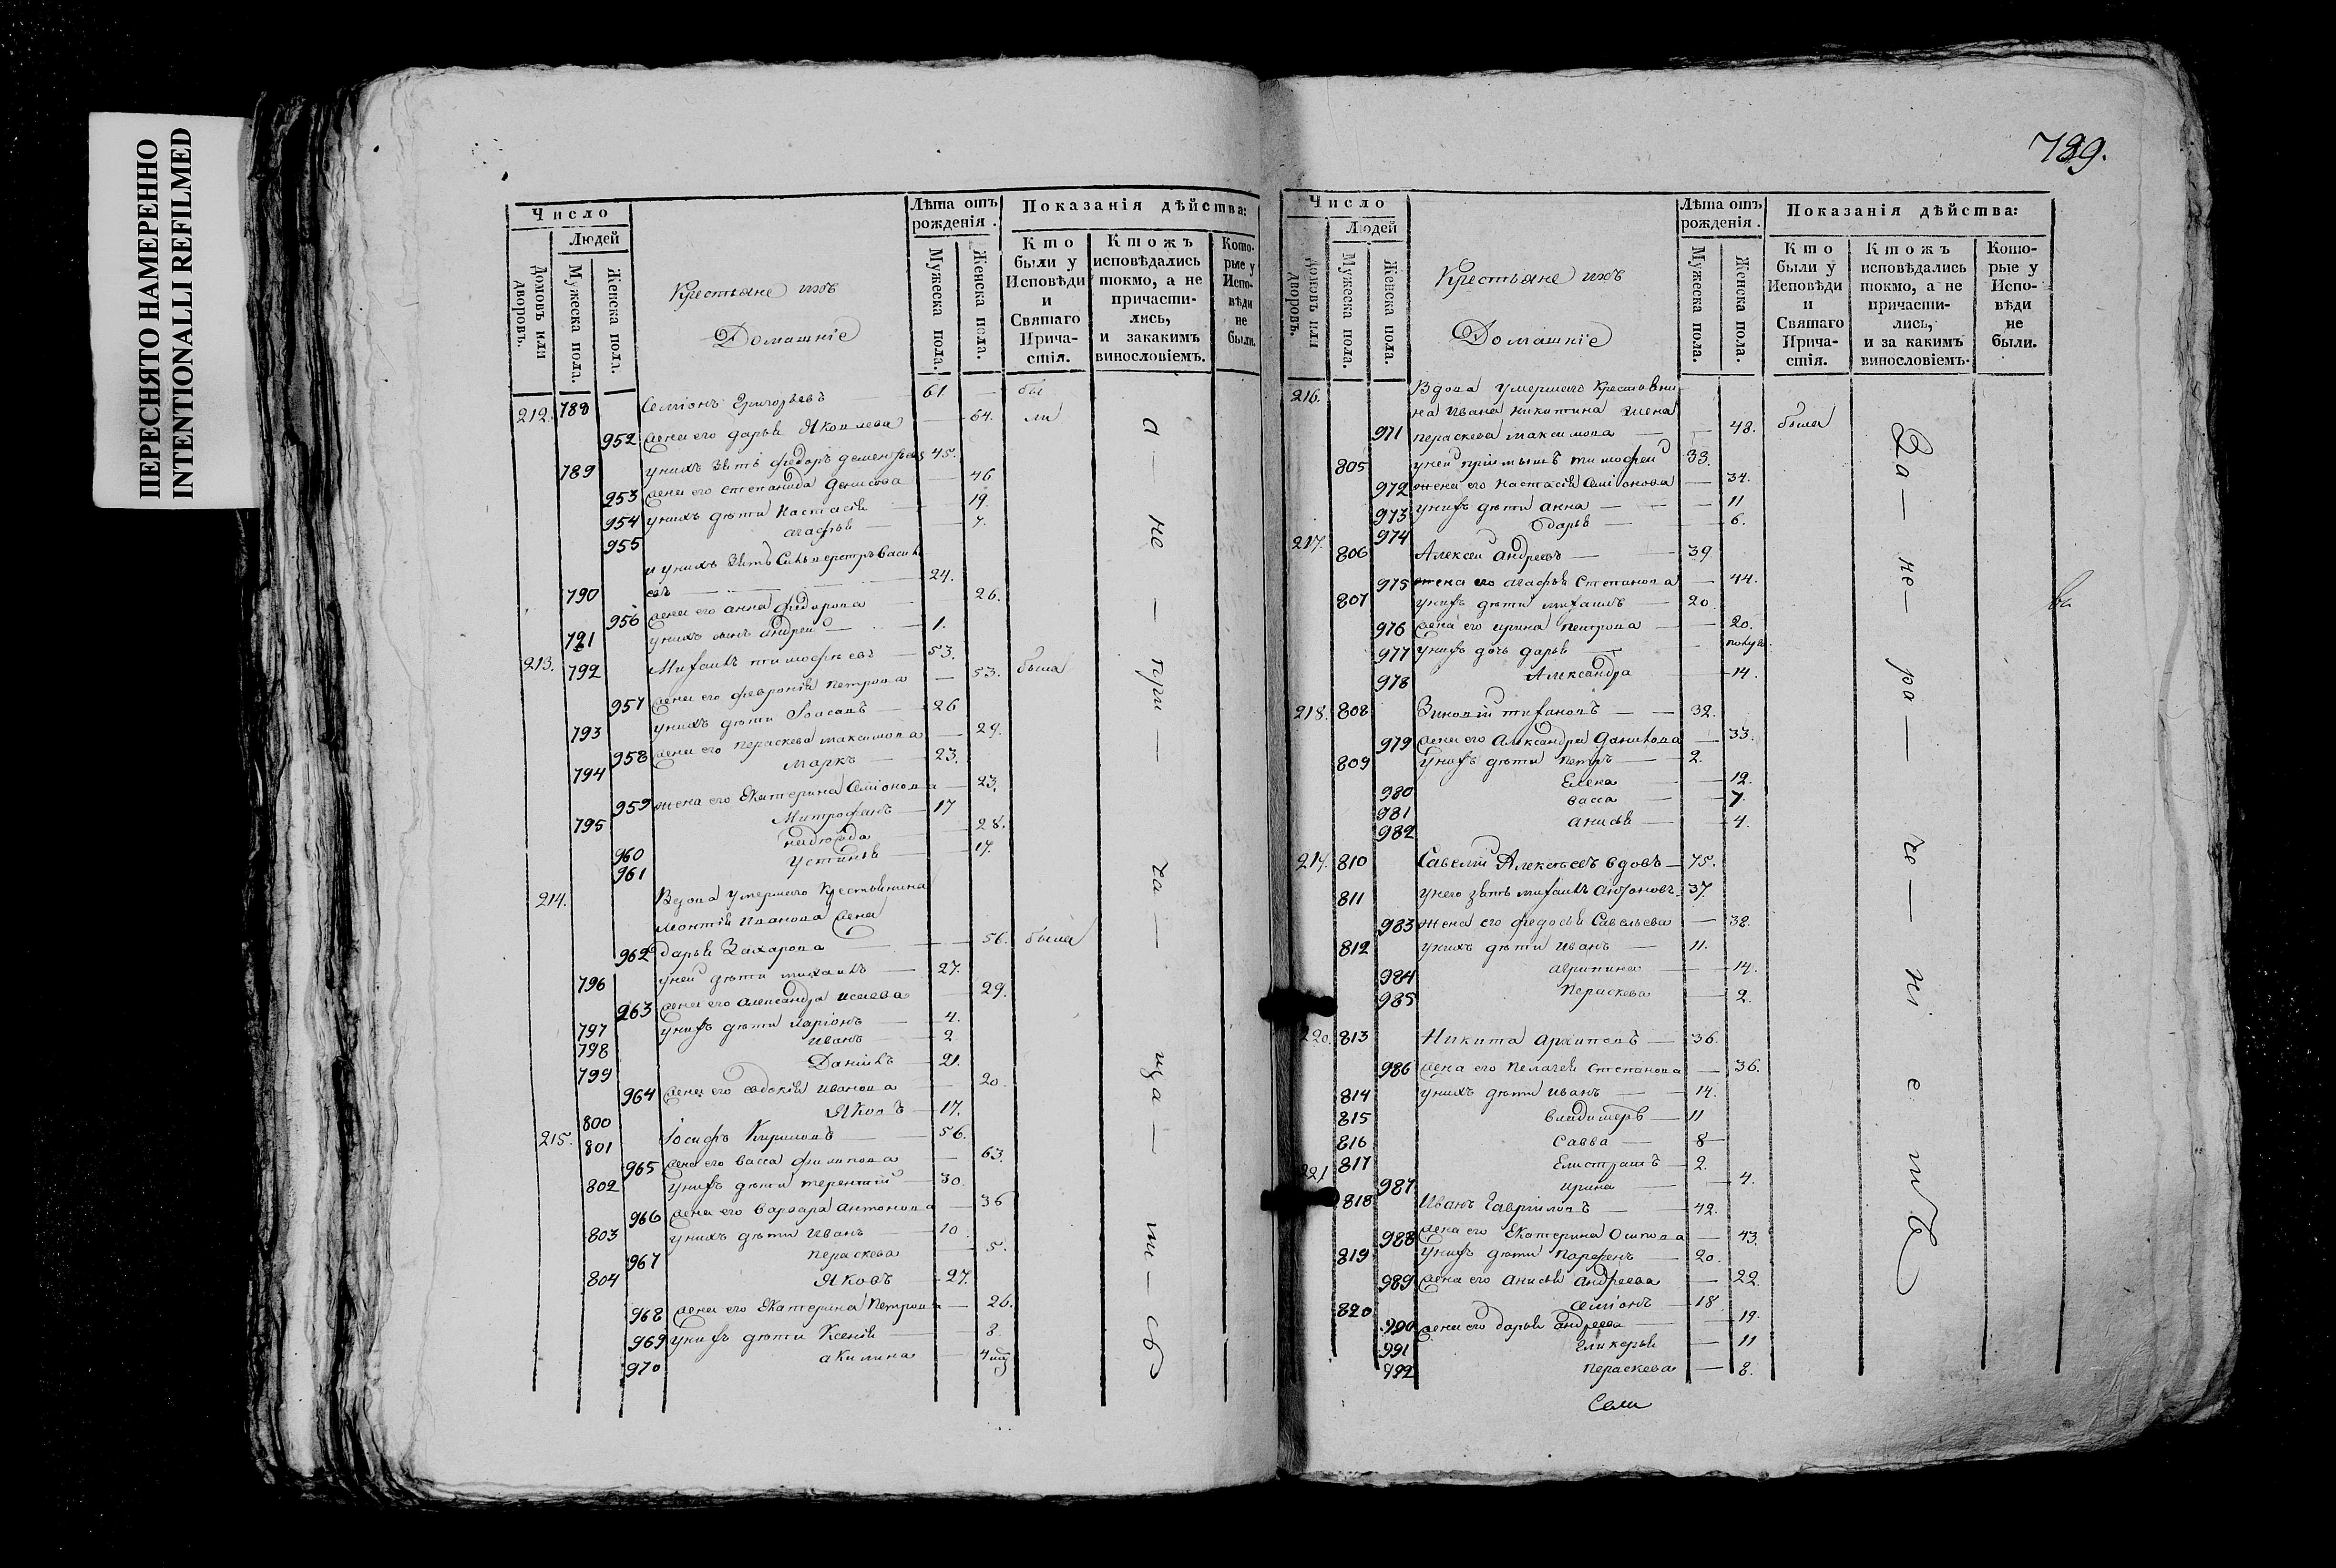 ПЕРЕСНЯТО НАМЕРЕННО
INTENTIONALLI REFILMED
Число
Людей
Домовъ или дворовъ.
Мужеска пола.
Женска пола.
Крестьяне ихъ
Домашніе
Лѣта отъ рожденія.
Мужеска пола.
Женска пола.
Показанія дѣйства:
Кто были у Исповѣди и Святаго Причастія.
Ктожъ исповѣдались токмо, а не причастились, и закакимъ винословіемъ.
Которые у Исповѣди не были.
212. 788 Семіонъ Григорьевъ 61 бы
952 жена его дарья Яковлева 64. ли
789 унихъ зять федоръ дементьевъ 45.
953 жена его степанида денисова 46
954 унихъ дѣти настасія 19.
955 агафья 7.
и унихъ зять Сильверстръ Василь
790 евъ 24.
956 жена его анна федорова 26.
791 унихъ сынъ андрей 1.
213. 792 Михаилъ тимофеевъ 53.
957 жена его февронія петрова 53. была
793 унихъ дѣти 26
958 жена его пераскева максимова 29.
794 маркъ 23.
959 жена его Екатерина Семіонова 23.
795 Митрофанъ 17
960 надюжда 28.
961 устинья 17.
214. Вдова умершаго Крестьянина
Монтія иванова жена
962 дарья Захарова 56. была
796 уней дѣти михаилъ 27.
963 жена его александра исаева 29.
797 унихъ дѣти ларіонъ 4.
798 иванъ 2
799 Даніилъ 21.
964 жена его евдокія иванова 20.
800 Яковъ 17.
215. 801 Іосифъ Кириловъ 56.
965 жена его васса филипова 63.
802 унихъ дѣти терентій 30.
966 жена его варвара антонова 36
803 унихъ дѣти иванъ 10.
967 пераскева 5.
804 Яковъ 27.
968 жена его Екатерина петрова 26.
969 унихъ дѣти Ксенія 8.
970 акилина
а — не — при — ча — ща — ю — съ
789.
Число
Людей
Домовъ или дворовъ.
Мужеска пола.
Женска пола.
Крестьяне ихъ
Домашніе
Лѣта отъ рожденія.
Мужеска пола.
Женска пола.
Показанія дѣйства:
Кто были у Исповѣди и Святаго Причастія.
Ктожъ исповѣдались токмо, а не причастились, и за какимъ винословіемъ.
Которые у Исповѣди не были.
216. Вдова умершаго крестьяни
на ивана никитина жена
971 пераскева максимова 48. была
805 уней пріимышъ тимофей 33.
972 жена его настасія семіонова 34.
973 унихъ дѣти анна 11
974 дарья 6.
217. 806 Алексей андреевъ 39.
975 жена его агафья степанова 44.
807 унихъ дѣти михаилъ 20
976 жена его ирина петрова 20.
977 унихъ дочь дарья
978 Александра 14.
218. 808 Зиновій тихановъ 32.
979 жена его александра данилова 33.
809 унихъ дѣти петръ 2.
980 Елена 12.
981 васса 7
982 анисья 4.
219. 810 Савелій Алексѣевъ вдовъ 75.
811 унего зять михаилъ антоновъ 37.
983 жена его федосья Савельева 38.
812 унихъ дѣти иванъ 11.
984 агрипина 14.
985 пераскева 2.
220. 813 Никита архиповъ 36.
986 жена его пелагея степанова 36.
814 унихъ дѣти иванъ 14.
815 владимеръ 11
816 савва 8
817 Елистратъ 2.
221 987 ирина 4.
818 Иванъ Гавриловъ 42.
988 жена его Екатерина Осипова 43.
819 унихъ дѣти парфенъ 20.
989 жена его анисья андреева 22.
820 семіонъ 18
990 жена его дарья андреева 19.
991 гликерья 11
992 пераскева 8.
За — не — ра — че — ні е мъ
Семи